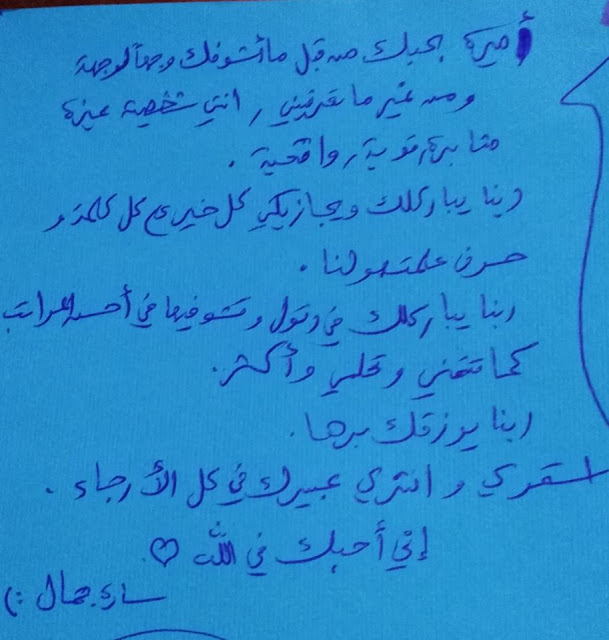 أميرة بحبك من قبل ما أشوفك وجهاً لوجهة
ومن غير ما تعرفيني, انتي شخصية عزيزة
مثابرة, قوية, واقعية .
ربنا يبارككلك ويجازيكي كل خير ع كل كلمة و
حرف علمتهولنا .
ربنا يباركلك في وتشوفيها في أحسن المراتب
كما تتمني وتحلمي وأكثر.
ربنا يرزقك برها.
استمري و انثري عبيرك في كل الأرجاء .
إني أحبك في الله ♡.
سارة جمال :)